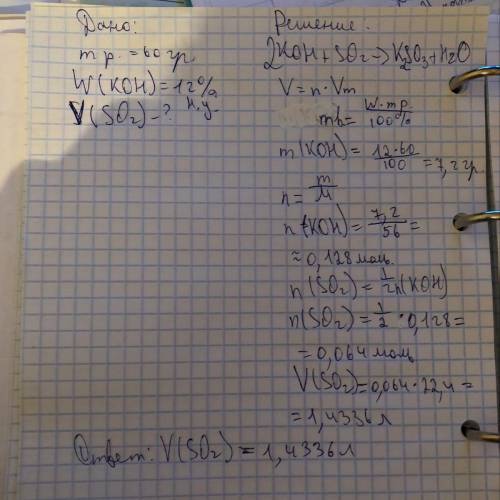 Дано:
m р. = 60 гр.
W(KOH) = 12%
V(SO₂) - ? н.у.
Решение:
2KOH + SO₂ → K₂SO₃ + H₂O
V = n · Vm
mв = W · mр. / 100%
m(KOH) = 12·60 / 100 = 7,2 гр.
n = m / M
n (KOH) = 7,2 / 56 =
≈ 0,128 моль.
n (SO₂) = 1/2 n(KOH)
n(SO₂) = 1/2 · 0,128 =
= 0,064 моль
V(SO₂) = 0,064 · 22,4 =
= 1,4336 л
Ответ: V(SO₂) = 1,4336 л